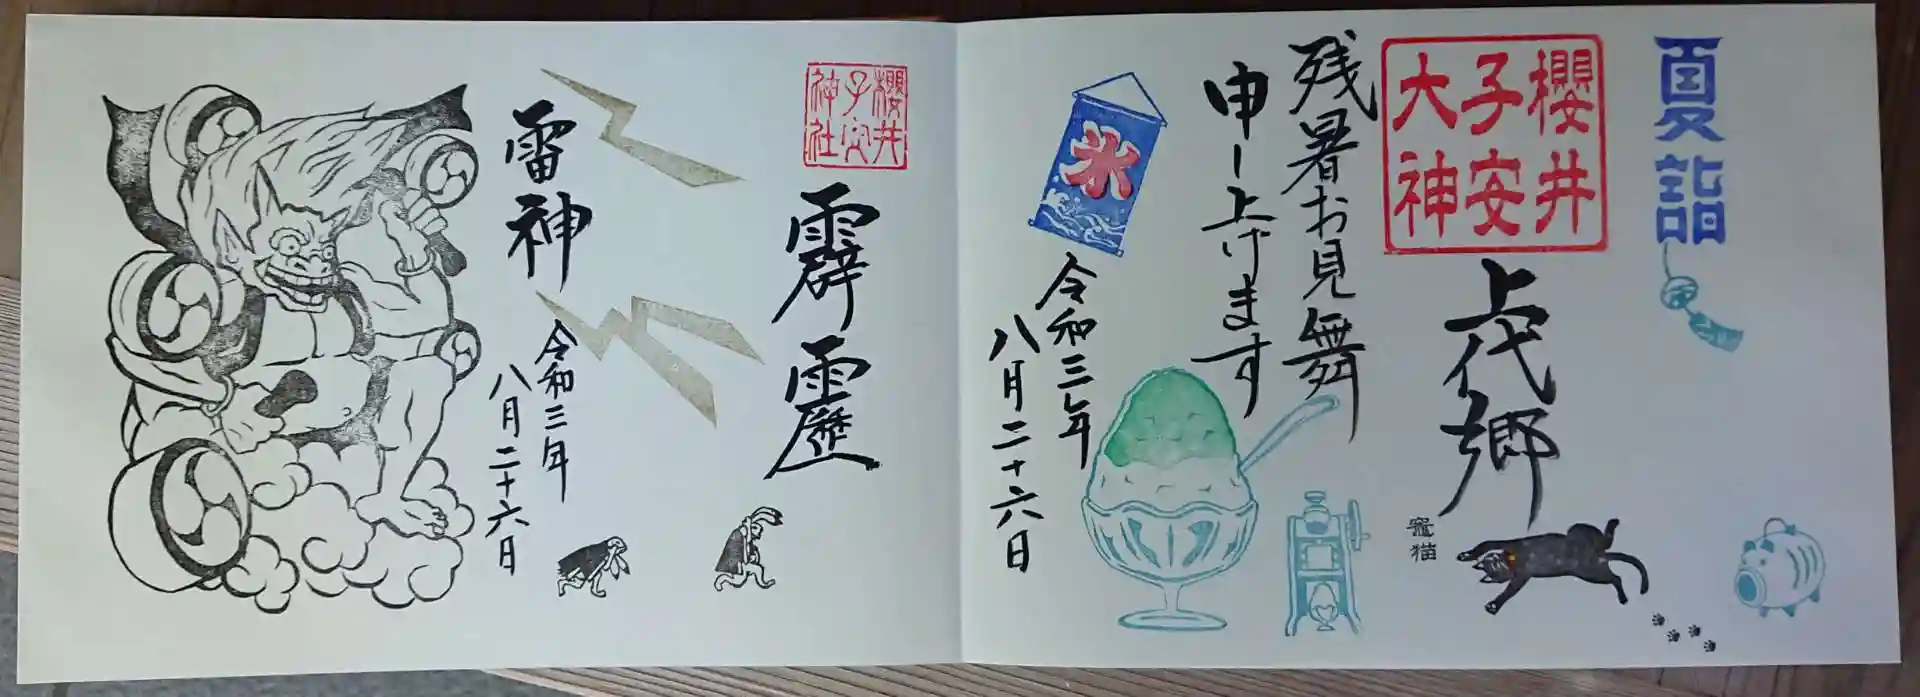 夏詣
櫻井
子安
大神
上代郷
残暑お見舞
申し上げます
氷
令和三年
八月二十六日
竈猫
櫻井
子安
神社
霹靂
雷神
令和三年
八月二十六日